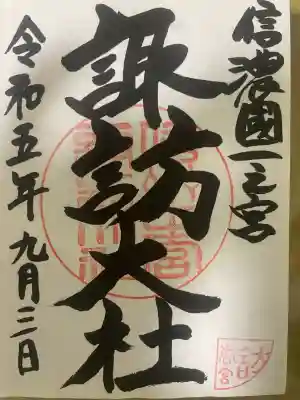 信濃國一之宮
諏訪大社
令和五年九月三日